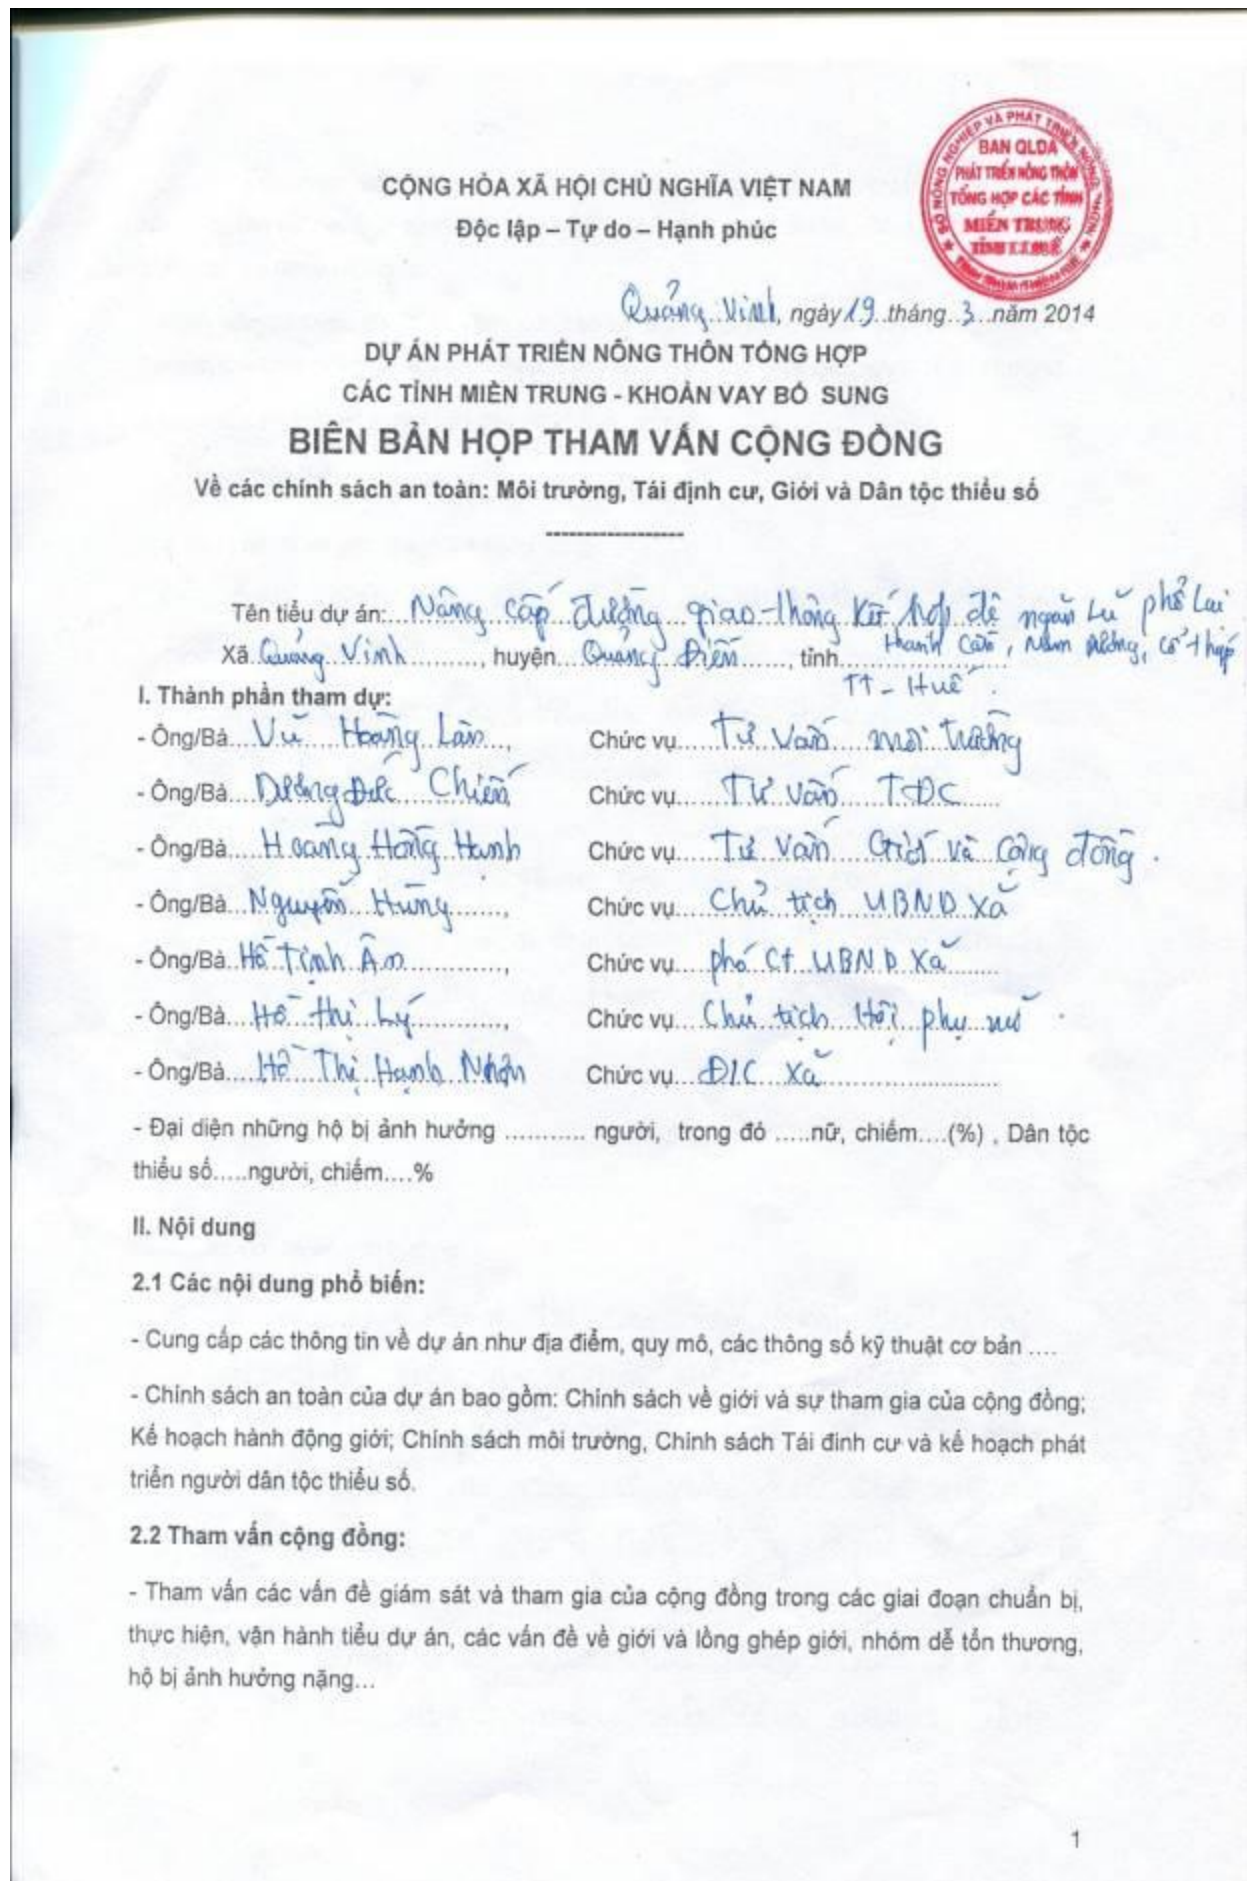 SỞ NÔNG NGHIỆP VÀ PHÁT TRIỂN NÔNG THÔN
BAN QLDA
PHÁT TRIỂN NÔNG THÔN
TỔNG HỢP CÁC TỈNH
MIỀN TRUNG
TỈNH T.T.HUẾ
CỘNG HÒA XÃ HỘI CHỦ NGHĨA VIỆT NAM
Độc lập – Tự do – Hạnh phúc
Quảng Vinh, ngày 19 tháng 3 năm 2014
DỰ ÁN PHÁT TRIỂN NÔNG THÔN TỔNG HỢP
CÁC TỈNH MIỀN TRUNG - KHOẢN VAY BỔ SUNG
BIÊN BẢN HỌP THAM VẤN CỘNG ĐỒNG
Về các chính sách an toàn: Môi trường, Tái định cư, Giới và Dân tộc thiểu số
------------------
Tên tiểu dự án: Nâng cấp đường giao thông kết hợp đê ngăn lũ phổ Lai
thanh Cần, Nam Dương, Cổ Tháp
Xã Quảng Vinh, huyện Quảng Điền, tỉnh
TT - Huế.
I. Thành phần tham dự:
- Ông/Bà Vũ Hoàng Lân, Chức vụ Tư vấn môi trường
- Ông/Bà Dương Đức Chiến Chức vụ Tư vấn TĐC
- Ông/Bà Hoàng Hồng Hạnh Chức vụ Tư vấn Giới và Cộng đồng.
- Ông/Bà Nguyễn Hùng, Chức vụ Chủ tịch UBND xã
- Ông/Bà Hồ Tịnh Âm, Chức vụ phó Ct UBND xã
- Ông/Bà Hồ thị Lý, Chức vụ Chủ tịch Hội phụ nữ.
- Ông/Bà Hồ Thị Hạnh Nhơn Chức vụ ĐIC xã
- Đại diện những hộ bị ảnh hưởng ........... người, trong đó .....nữ, chiếm....(%) , Dân tộc
thiểu số.....người, chiếm....%
II. Nội dung
2.1 Các nội dung phổ biến:
- Cung cấp các thông tin về dự án như địa điểm, quy mô, các thông số kỹ thuật cơ bản ....
- Chính sách an toàn của dự án bao gồm: Chính sách về giới và sự tham gia của cộng đồng;
Kế hoạch hành động giới; Chính sách môi trường, Chính sách Tái đinh cư và kế hoạch phát
triển người dân tộc thiểu số.
2.2 Tham vấn cộng đồng:
- Tham vấn các vấn đề giám sát và tham gia của cộng đồng trong các giai đoạn chuẩn bị,
thực hiện, vận hành tiểu dự án, các vấn đề về giới và lồng ghép giới, nhóm dễ tổn thương,
hộ bị ảnh hưởng nặng...
1